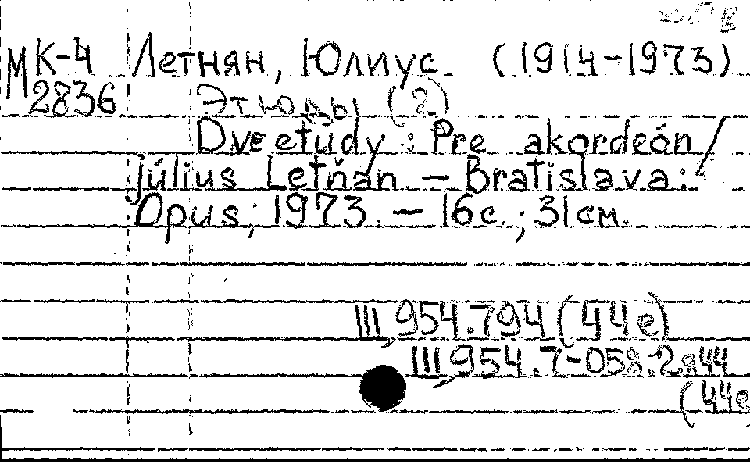 МК-4 Летнян, Юлиус (1914-1973)
2836 Этюды (2)
Dve etudy : Pre akordeón /
július Letňan. – Bratislava :
Opus, 1973. – 16с. ; 31см.
III, 954.794 (44е)
III, 954.7-058.2я44
(44е